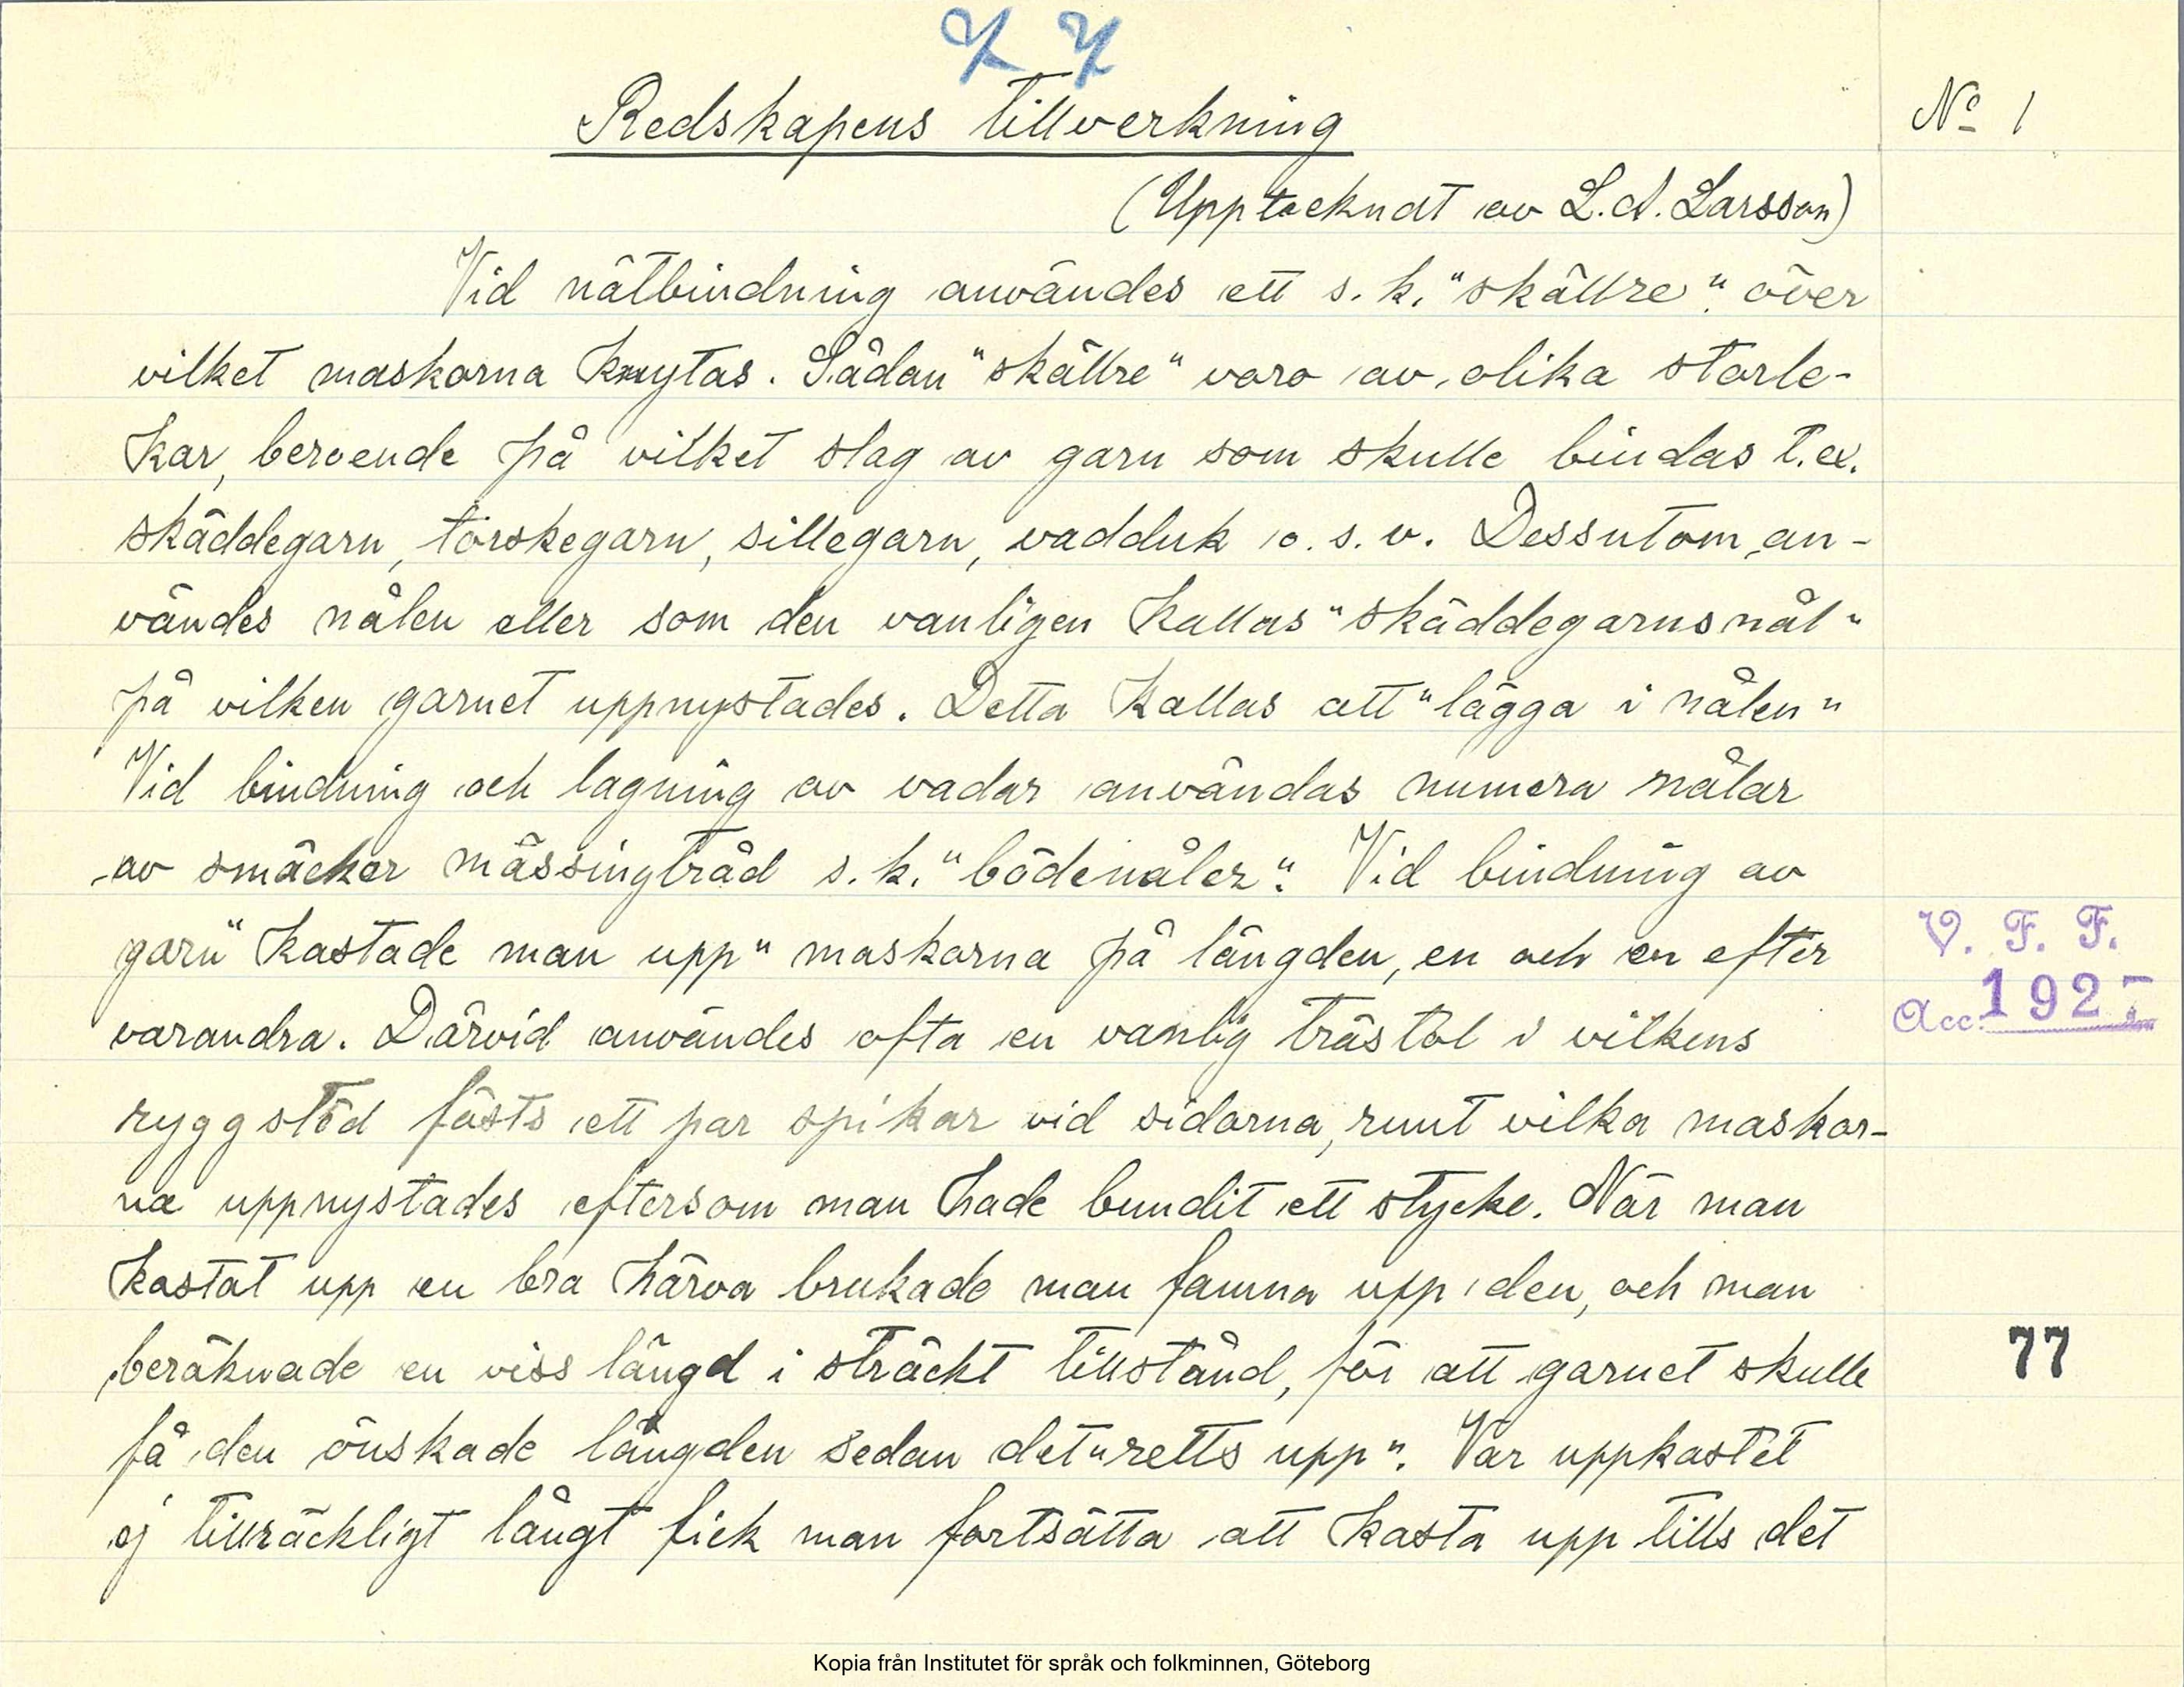 Redskapens tillverkning
No 1
(Upptecknat av L.A. Larsson)
Vid nätbindning användes ett s.k. "skällre" över
vilket maskorna knytas. Sådan "skällre" voro av olika storle-
kar, beroende på vilket slag av garn som skulle bindas t.ex.
skäddegarn, torskegarn, sillegarn, vadduk o.s.v. Dessutom an-
vändes nålen eller som den vanligen kallas "skäddegarnsnål"
på vilken garnet uppnystades. Detta kallas att "lägga i nålen"
Vid bindning och lagning av vadar användas numera nålar
av smäcker mässingtråd s.k. "bödenåler". Vid bindning av
garn "kastade man upp" maskorna på längden, en och en efter
varandra. Därvid användes ofta en vanlig trästol i vilkens
ryggstöd fästs ett par spikar vid sidorna, runt vilka maskor-
na uppnystades eftersom man hade bundit ett stycke. När man
kastat upp en bra härva brukade man famna upp den, och man
beräknade en viss längd i sträckt tillstånd, för att garnet skulle
få den önskade längden sedan det "retts upp". Var uppkastet
ej tillräckligt långt fick man fortsätta att kasta upp tills det
V. F. F.
Acc. 192
77
Kopia från Institutet för språk och folkminnen, Göteborg